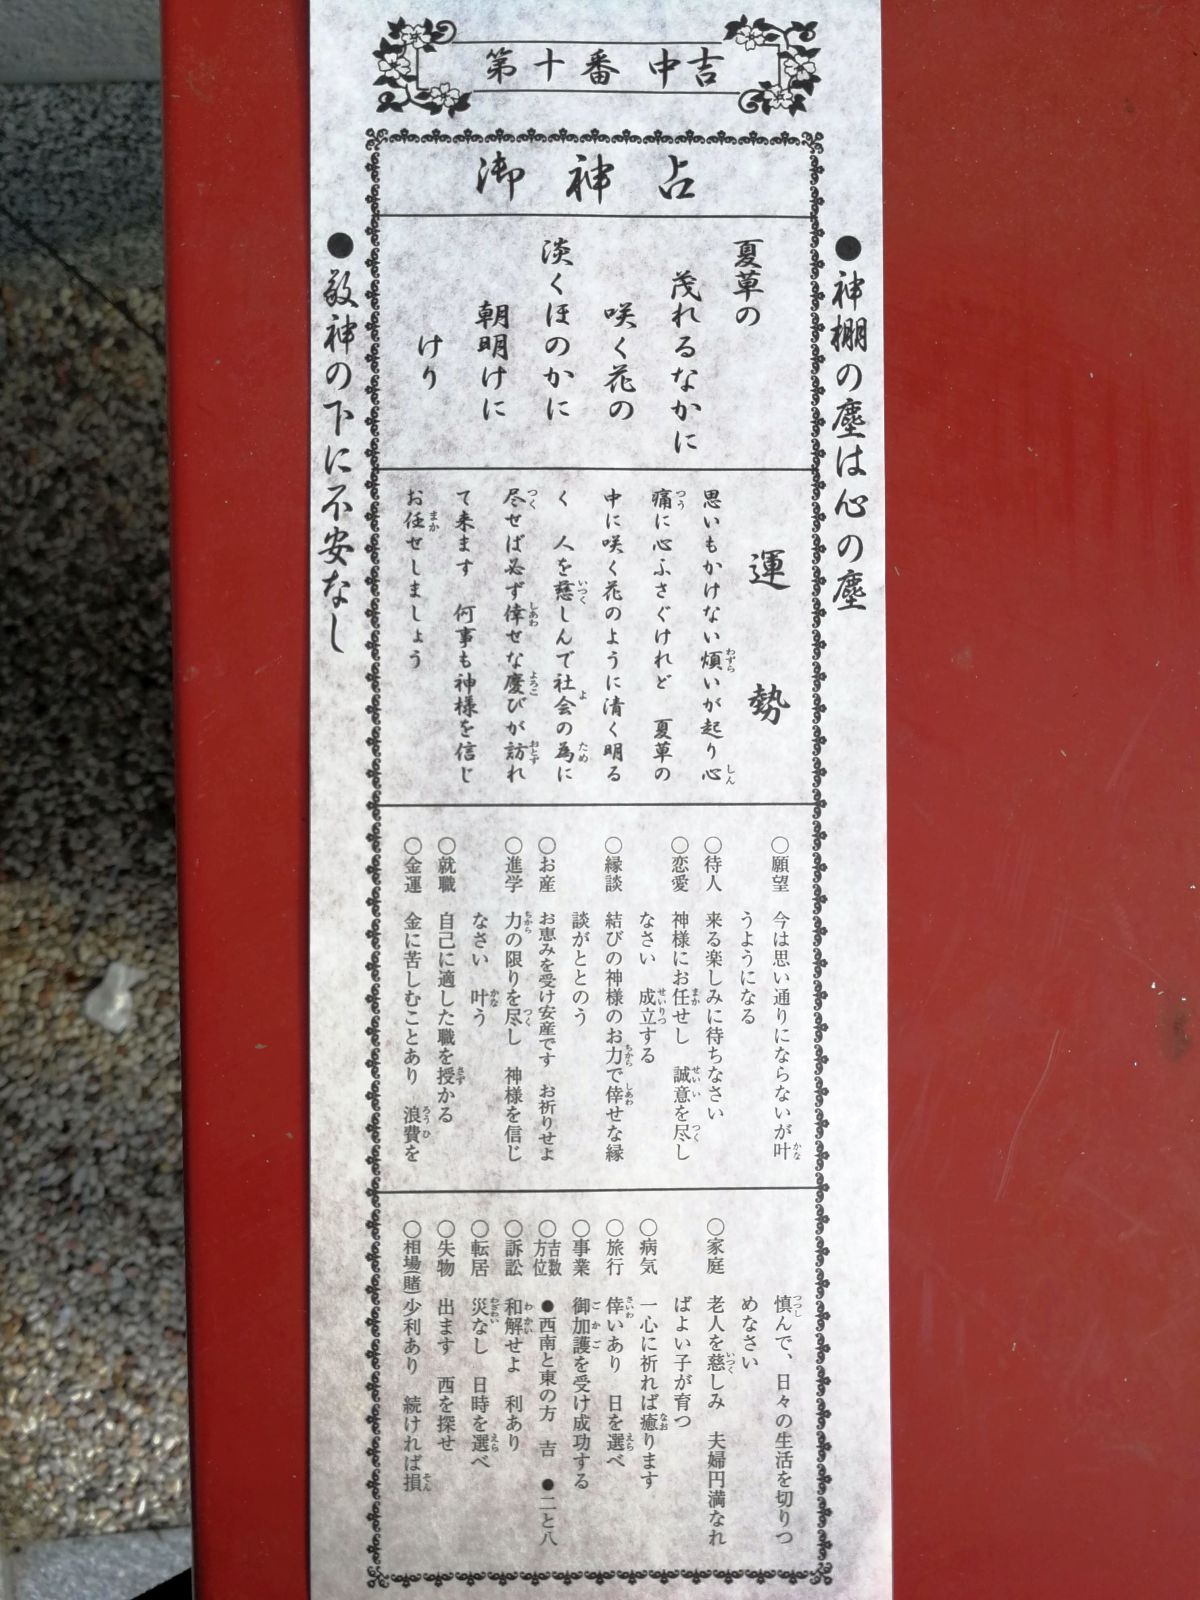 第十番 中吉
御神占
●神棚の塵は心の塵
夏草の
茂れるなかに
咲く花の
淡くほのかに
朝明けに
けり
運勢
思いもかけない煩いが起り心
痛に心ふさぐけれど 夏草の
中に咲く花のように清く明る
く 人を慈しんで社会の為に
尽せば必ず倖せな慶びが訪れ
て来ます 何事も神様を信じ
お任せしましょう
○願望 今は思い通りにならないが叶
うようになる
○待人 来る楽しみに待ちなさい
○恋愛 神様にお任せし 誠意を尽し
なさい 成立する
○縁談 結びの神様のお力で倖せな縁
談がととのう
○お産 お恵みを受け安産です お祈りせよ
○進学 力の限りを尽し 神様を信じ
なさい 叶う
○就職 自己に適した職を授かる
○金運 金に苦しむことあり 浪費を
慎んで、日々の生活を切りつ
めなさい
○家庭 老人を慈しみ 夫婦円満なれ
ばよい子が育つ
○病気 一心に祈れば癒ります
○旅行 倖いあり 日を選べ
○事業 御加護を受け成功する
○吉数方位 ●西南と東の方 吉 ●二と八
○訴訟 和解せよ 利あり
○転居 災なし 日時を選べ
○失物 出ます 西を探せ
○相場(賭) 少利あり 続ければ損
●敬神の下に不安なし